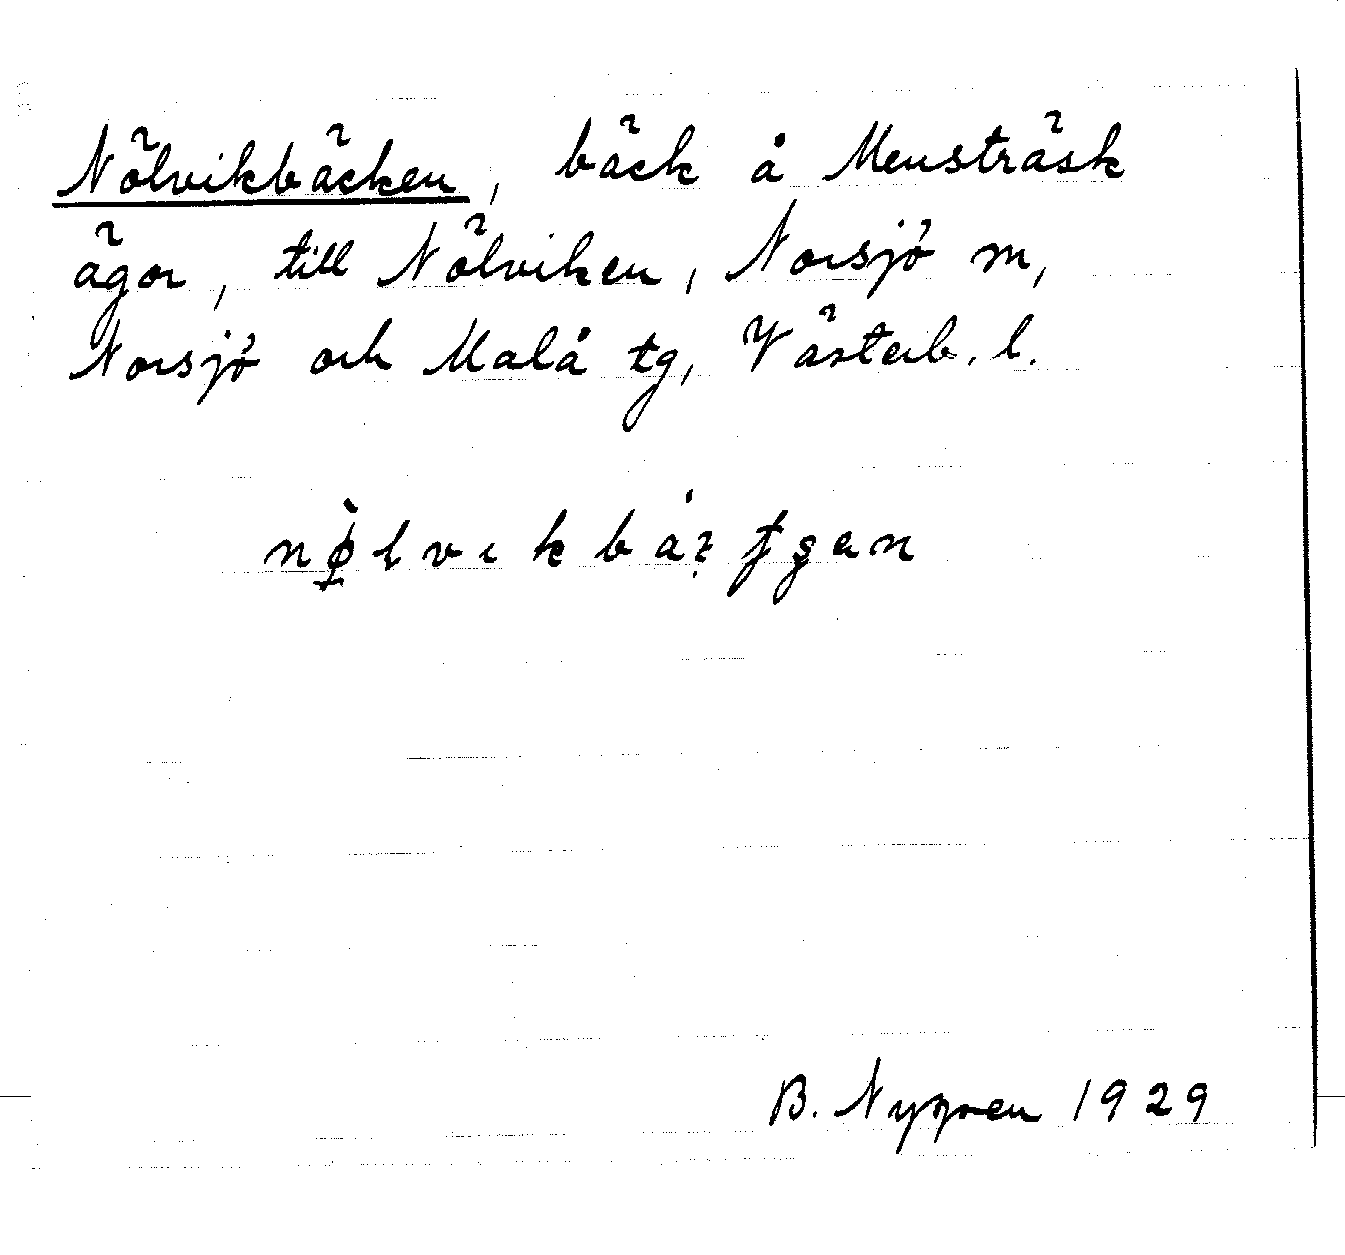 Nölvikbäcken, bäck å Mensträsk
ägor, till Nölviken, Norsjö sn,
Norsjö och Malå tg, Västerb. l.
B. Nygren 1929